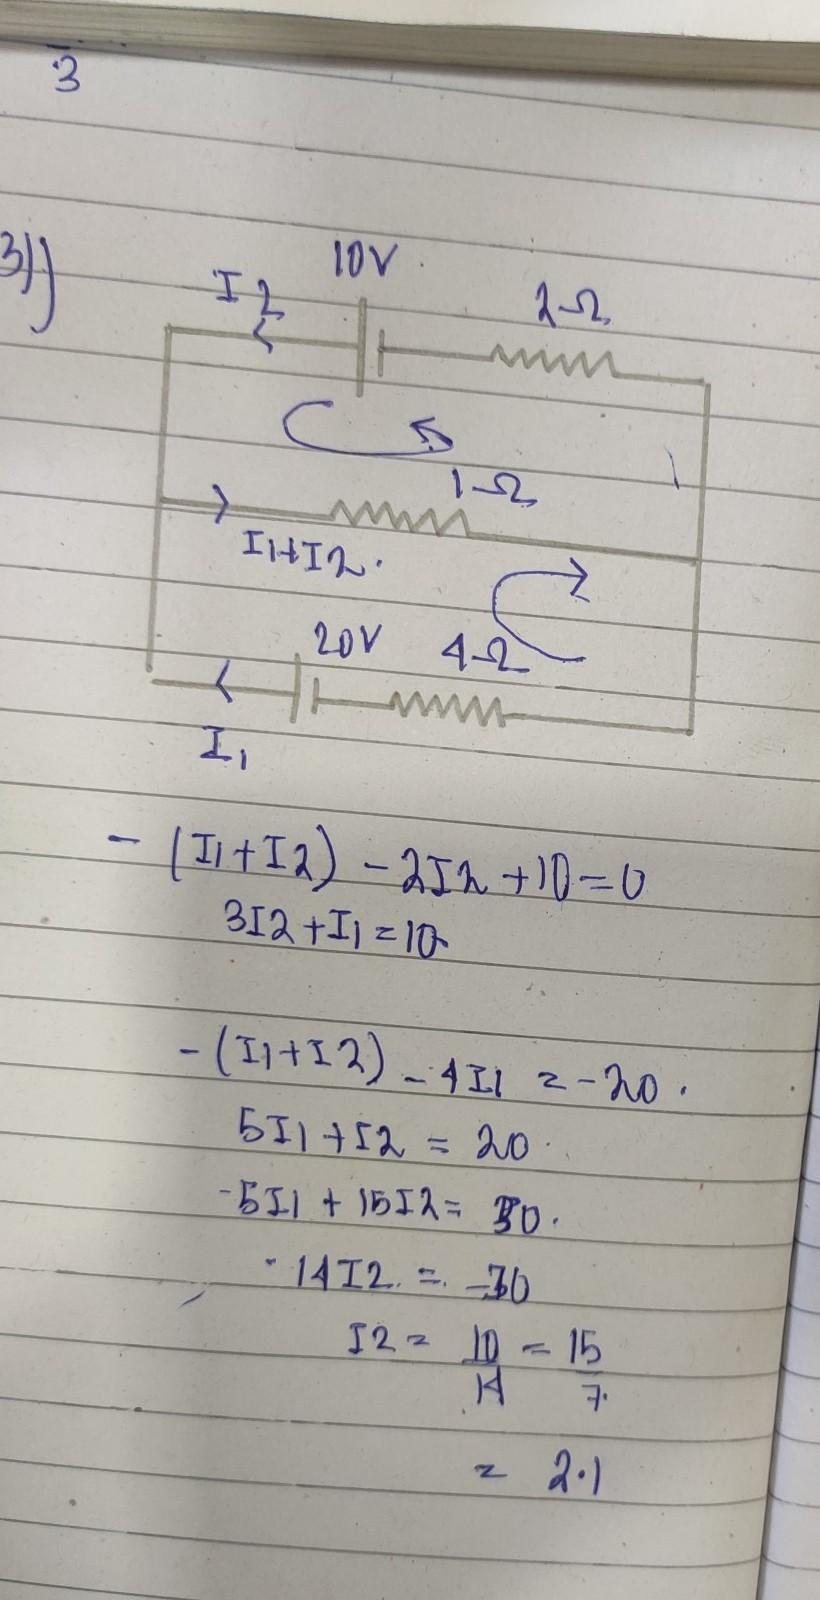 3
3))
10V
I2
2Ω
1Ω
I1+I2.
20V
4Ω
I1
- (I1+I2) - 2I2 +10=0
3I2+I1=10
-(I1+I2) - 4I1 = -20.
5I1+I2 = 20.
-5I1 + 15I2= 50.
- 14I2. = -30
I2 = 10/14 = 15/7.
= 2.1